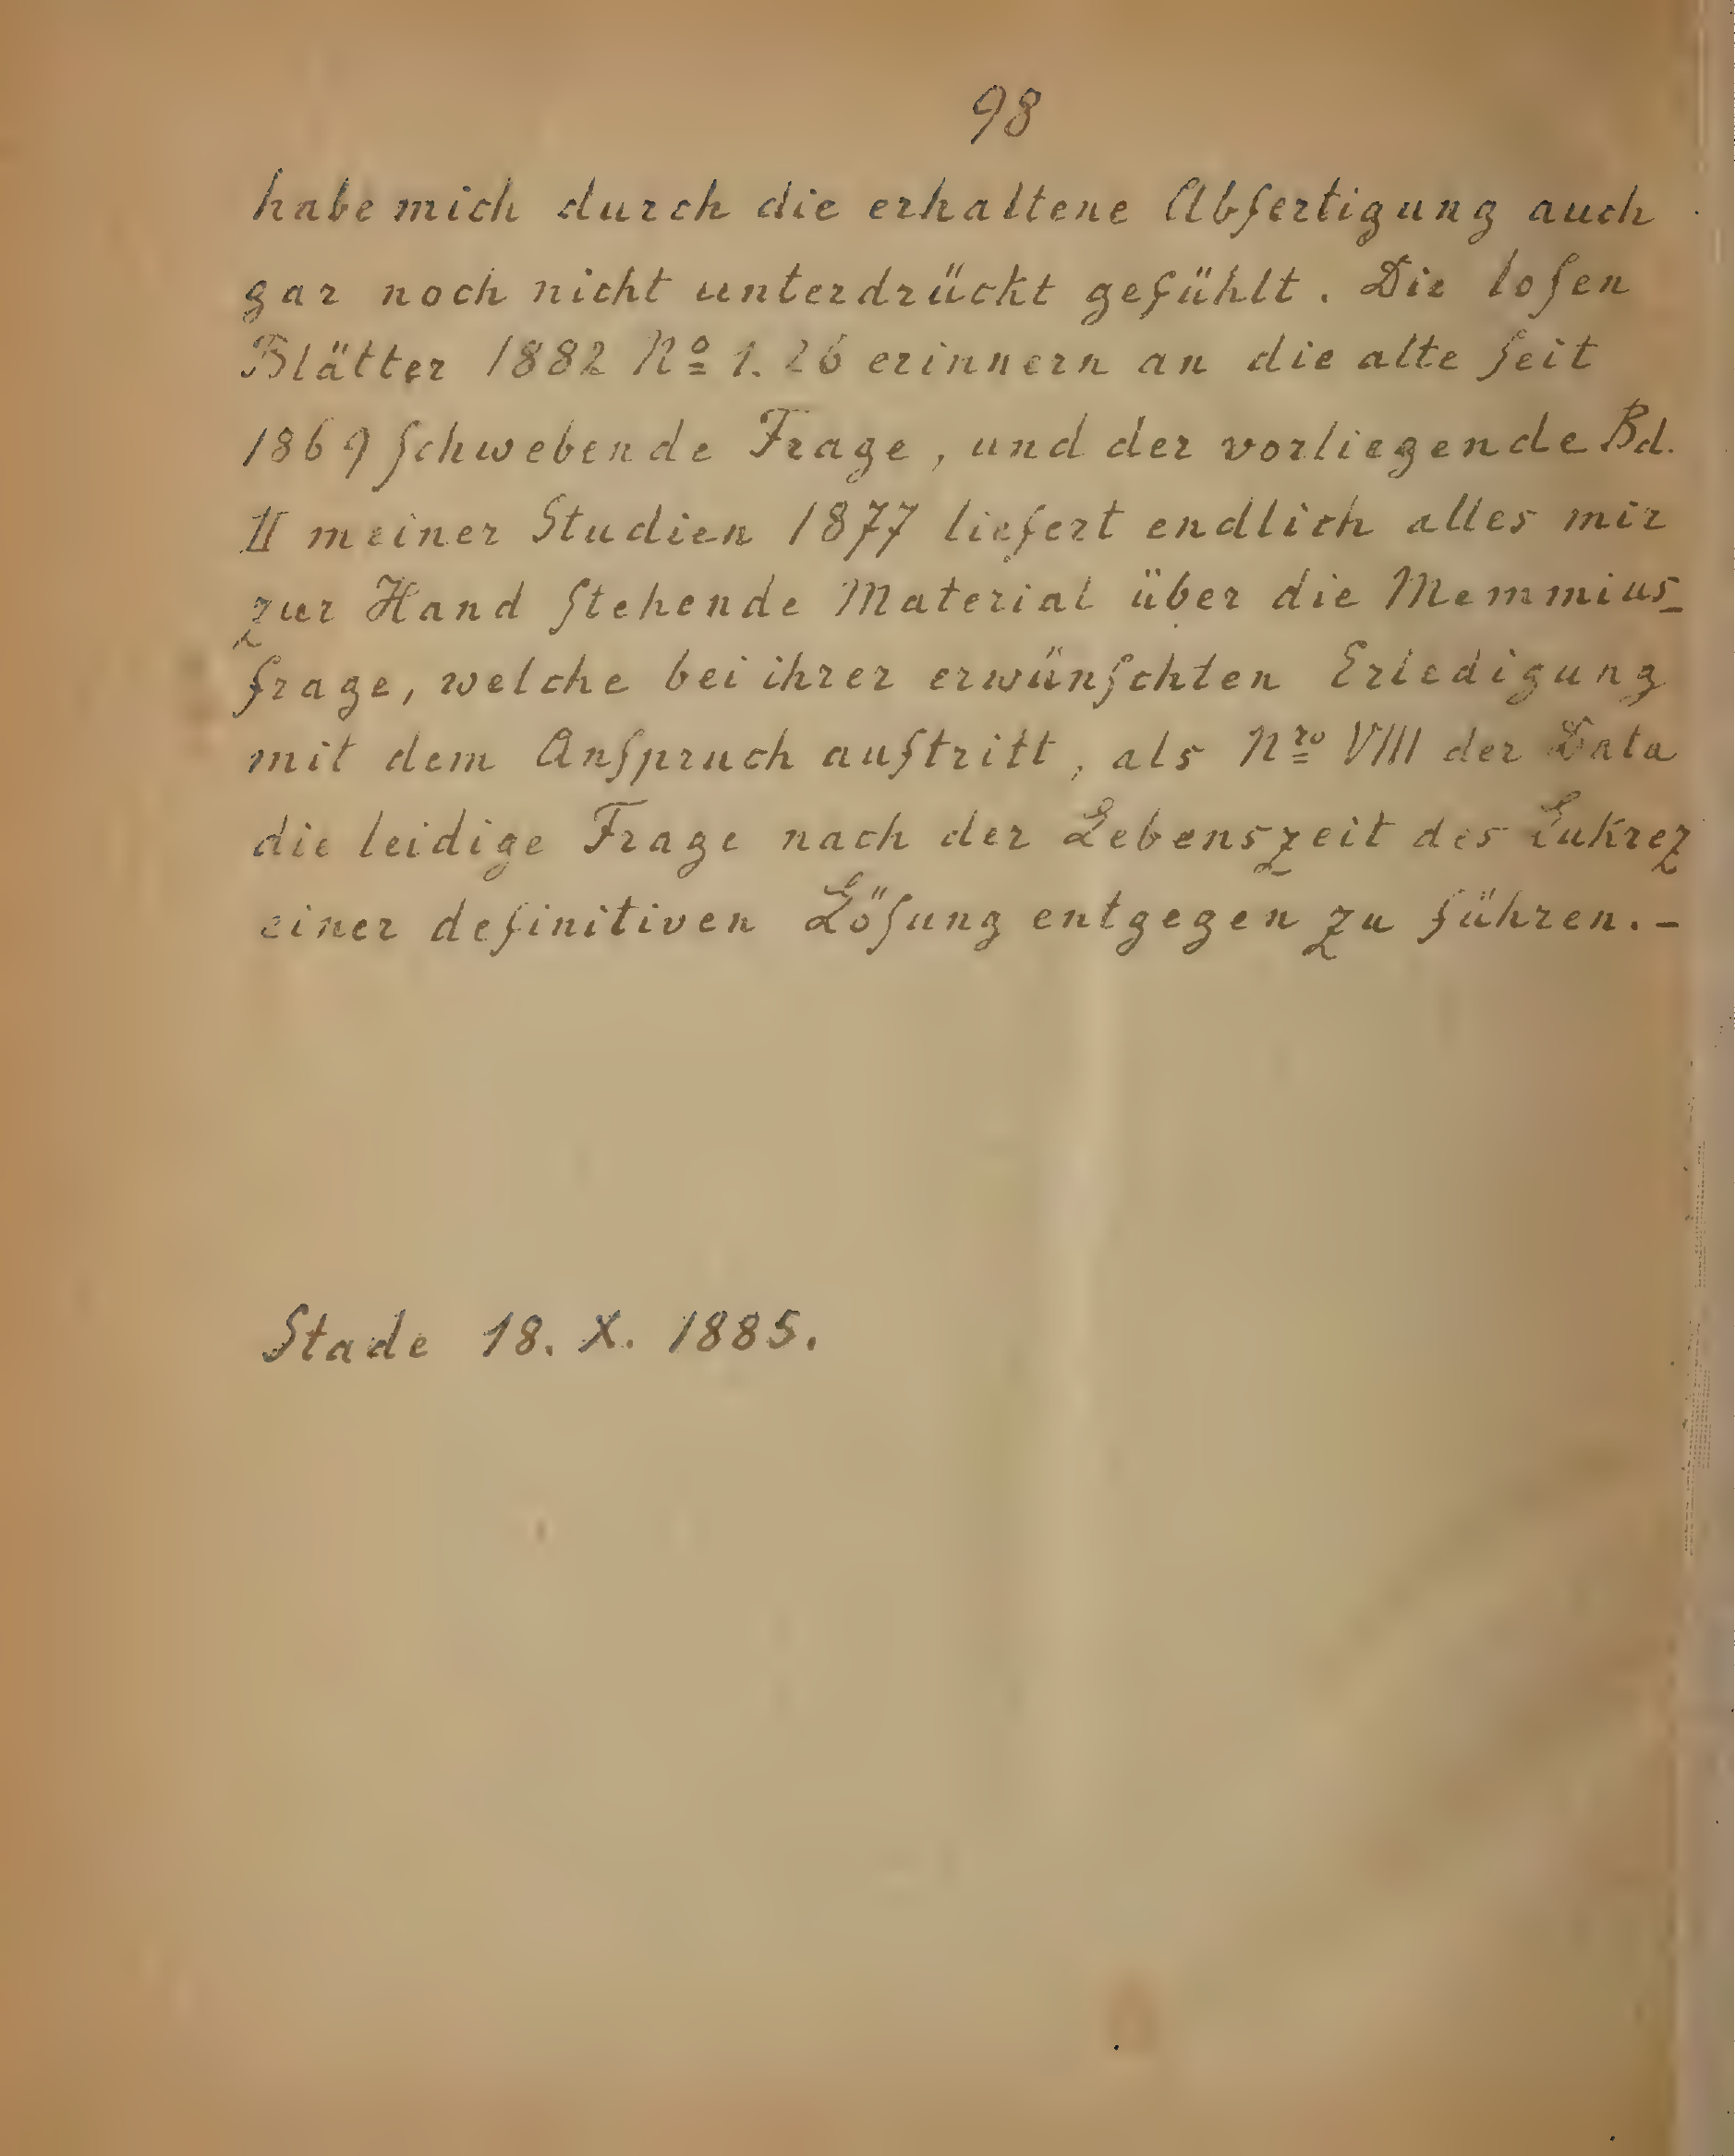 98
habe mich durch die erhaltene Abfertigung auch
gar noch nicht unterdrückt gefühlt. Die loſen
Blätter 1882 Nº 1. 26 erinnern an die alte ſeit
1869 ſchwebende Frage, und der vorliegende Bd.
II meiner Studien 1877 liefert endlich alles mir
zur Hand ſtehende Material über die Memmius-
frage, welche bei ihrer erwünſchten Erledigung
mit dem Anſpruch auftritt, als Nro VIII der Data
die leidige Frage nach der Lebenszeit des Lukrez
einer definitiven Löſung entgegen zu führen. –
Stade 18. X. 1885.